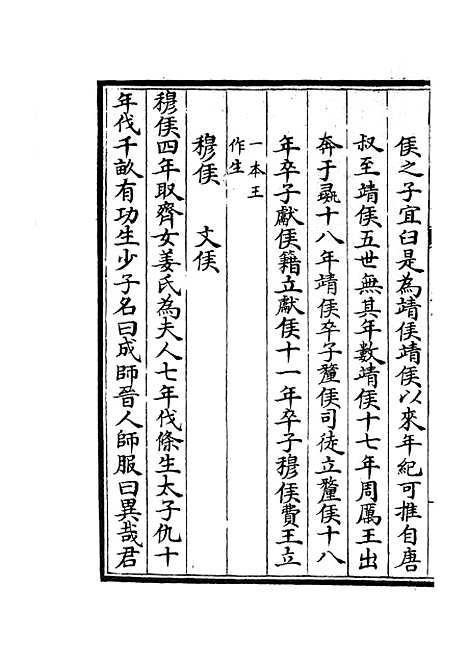 侯之子宜臼是為靖侯靖侯以來年紀可推自唐
叔至靖侯五世無其年數靖侯十七年周厲王出
奔于彘十八年靖侯卒子釐侯司徒立釐侯十八
年卒子獻侯籍立獻侯十一年卒子穆侯費王立
一本王
作生
穆侯　文侯
穆侯四年取齊女姜氏為夫人七年伐條生太子仇十
年伐千畝有功生少子名曰成師晉人師服曰異哉君